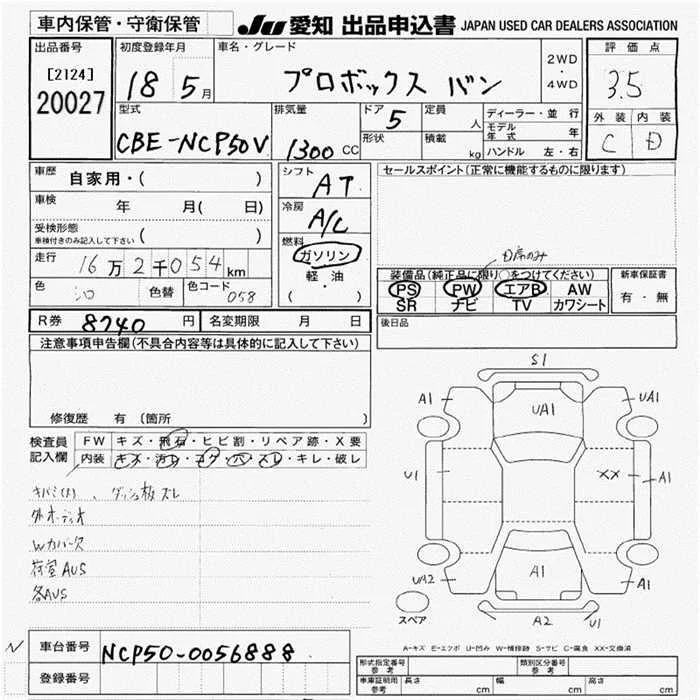 車内保管・守衛保管
JU 愛知 出品申込書 JAPAN USED CAR DEALERS ASSOCIATION
出品番号
[2124]
20027
初度登録年月
18 5月
車名・グレード
プロボックス バン
2WD
・
4WD
評価点
3.5
外装 内装
C D
型式
CBE-NCP50V
排気量
1300 CC
ドア 5
形状
定員 人
積載 kg
ディーラー・並行
モデル年式 年
ハンドル 左・右
車歴 自家用・( )
車検 年 月( 日)
受検形態
車検付きのみ記入して下さい ( )
走行 16万2千054km
色 シロ 色替 色コード 058
シフト AT
冷房 A/C
燃料
ガソリン
軽・油
( ・ )
セールスポイント(正常に機能するものに限ります)
D席のみ
装備品(純正品に限り○をつけてください)
PS PW エアB AW
SR ナビ TV カワシート
新車保証書
有・無
R券 8740円 名変期限 月 日
後日品
注意事項申告欄(不具合内容等は具体的に記入して下さい)
修復歴 有(箇所 )
検査員記入欄
FW キズ・飛石・ヒビ割・リペア跡・X要
内装 キズ・汚れ・コゲ・穴・スレ・キレ・破レ
キバミ(大)、ダッシュ板スレ
外オーディオ
Wカバー欠
荷室AUS
各AUS
S1
A1 UA1 UA1
U1 XX A1
UA2 A1 A1
A2 U1
スペア
A-キズ E-エクボ U-凹み W-補修跡 S-サビ C-腐食 XX-交換済
N
車台番号 NCP50-0056888
登録番号
形式指定番号 参考
類別区分番号 参考
車庫証明用 参考 長さ cm 幅 cm 高さ cm